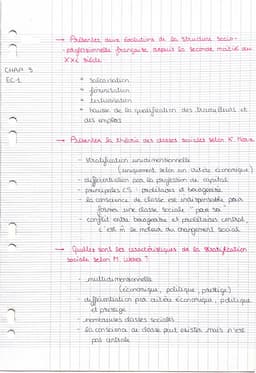 → Présentez deux évolutions de la structure socio-
-professionnelle française depuis la seconde moitié du
XXe siècle
CHAP 5
EC 1
* salarisation
* féminisation
* tertiarisation
* hausse de la qualification des travailleurs et
des emplois
→ Présenter la théorie des classes sociales selon K. Marx
- stratification unidimensionnelle
(uniquement selon un critère économique)
- différentiation par la possession du capital
- principales CS : prolétaires et bourgeoisie
- la conscience de classe est indispensable pour
former une classe sociale "pour soi"
- conflit entre bourgeoisie et prolétariat central,
c'est le moteur du changement social
→ Quelles sont les caractéristiques de la stratification
sociale selon M. Weber ?
- multidimensionnelle
(économique, politique, prestige)
- différentiation par critère économique, politique
et prestige
- nombreuses classes sociales
- la conscience de classe peut exister mais n'est
pas centrale